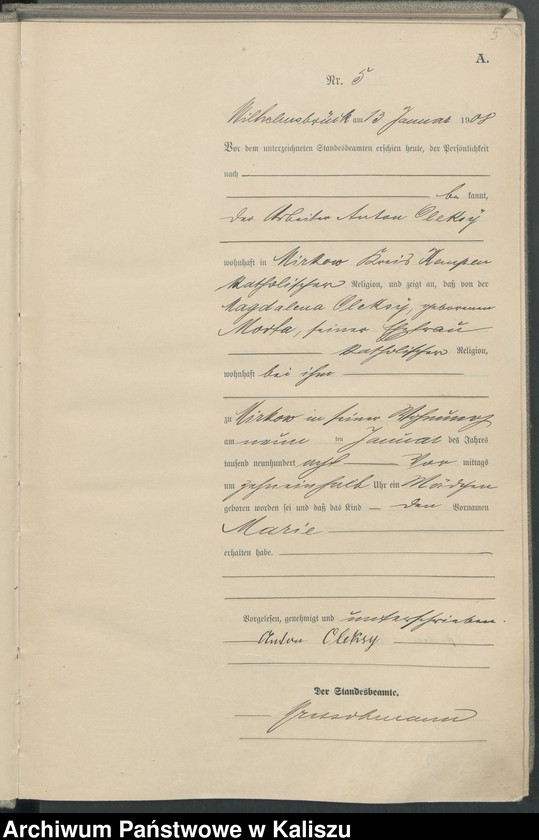 5
A.
Nr. 5
Wilhelmsbrück am 13 Januar 1908
Vor dem unterzeichneten Standesbeamten erschien heute, der Persönlichkeit
nach
be kannt,
der Arbeiter Anton Oleksy
wohnhaft in Mirkow Kreis Kempen
katholischer Religion, und zeigt an, daß von der
Magdalena Oleksy, geborenen
Morta, seiner Ehefrau
katholischer Religion,
wohnhaft bei ihm
zu Mirkow in seiner Wohnung
am neun ten Januar des Jahres
tausend neunhundert acht Vor mittags
um zehneinhalb Uhr ein Mädchen
geboren worden sei und daß das Kind den Vornamen
Marie
erhalten habe.
Vorgelesen, genehmigt und unterschrieben.
Anton Oleksy
Der Standesbeamte.
Archiwum Państwowe w Kaliszu